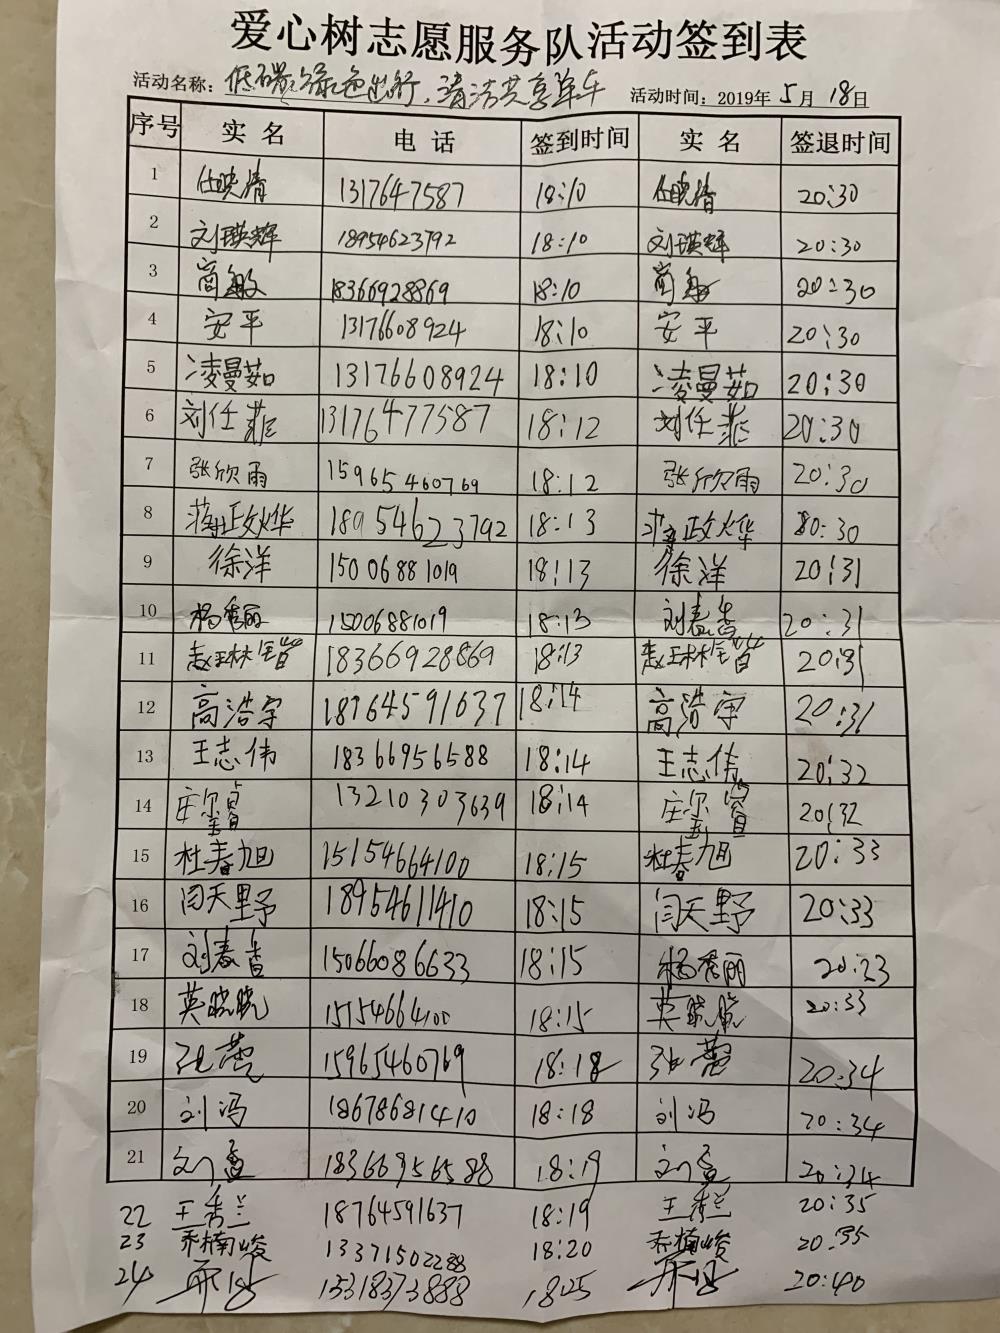 爱心树志愿服务队活动签到表
活动名称：低碳绿色出行，清洁共享单车 活动时间：2019年 5月 18日
序号 实 名 电 话 签到时间 实 名 签退时间
1 任晓清 1317647587 18:10 任晓清 20:30
2 刘瑛辉 18954623792 18:10 刘瑛辉 20:30
3 商敏 18366928869 18:10 商敏 20:30
4 安平 13176608924 18:10 安平 20:30
5 凌曼茹 13176608924 18:10 凌曼茹 20:30
6 刘任菲 13176477587 18:12 刘任菲 20:30
7 张欣雨 15965460769 18:12 张欣雨 20:30
8 蒋政烨 18954623792 18:13 蒋政烨 80:30
9 徐洋 15006881019 18:13 徐洋 20:31
10 杨秀丽 15006881019 18:13 刘春香 20:31
11 赵琳皆 18366928869 18:13 赵琳皆 20:31
12 高浩宇 18764591637 18:14 高浩宇 20:31
13 王志伟 18366956588 18:14 王志伟 20:32
14 庄 13210303639 18:14 庄 20:32
15 杜春旭 15154664100 18:15 杜春旭 20:33
16 闫天野 18954611410 18:15 闫天野 20:33
17 刘春香 15066086633 18:15 杨秀丽 20:23
18 英晓晓 15154664100 18:15 英晓晓 20:33
19 张蕾 15965460769 18:18 张蕾 20:34
20 刘冯 18678681410 18:18 刘冯 20:34
21 刘孟 18366956588 18:19 刘孟 20:34
22 王秀兰 18764591637 18:19 王秀兰 20:35
23 乔楠峻 13371502288 18:20 乔楠峻 20:35
24 15318373888 1825 20:40